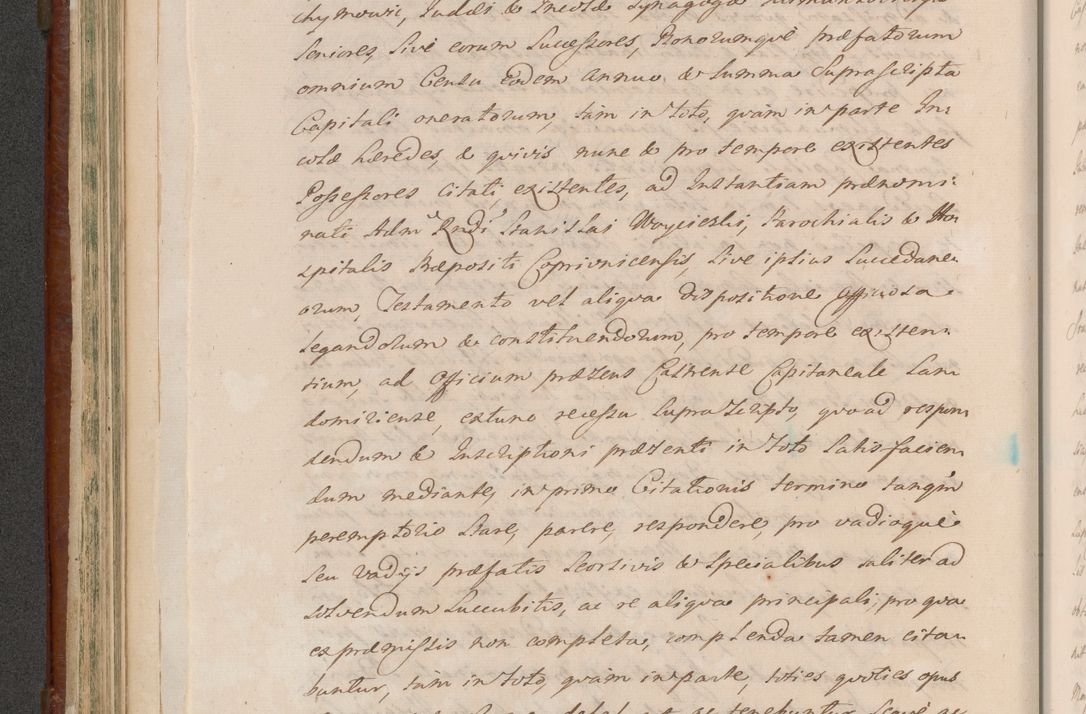 chymowic, Judæi & Incolæ Synagogæ
Seniores, Sivè eorum Successores, Bonorumquè præfatorum
omnium Censu eodem annuo & Summa Suprascripta
Capitali oneratorum, tàm in Toto, quàm in parte In:
colæ hæredes, & quivis nunc & pro tempore existentes
Possessores Citati, existentes, ad Instantiam prænomi:
nati Admˢ Rndi Stanislai Woyciezki, Parochialis & Ho:
spitalis Præpositi Coprivnicensis, Sive ipsius Succedane:
orum, Testamento vel aliqua dispositione Officiosa
legandorum & constituendorum, pro tempore existen:
tium, ad Officium præsens Castrense Capitaneale San:
domiriense, extunc recessu Suprascripto, quoad respon:
dendum & Inscriptioni præsenti in Toto Satisfacien:
dum mediante, in primo Citationis termino tanqm̃
peremptorio Stare, parere, respondere, pro vadioquè
Seu Vadijs præfatis Seorsivis & Specialibus taliter ad
solvendum Succubitis, ac re aliqua principali, pro qua
ex præmissis non completa, complenda tamen cita:
buntur, tàm in Toto, quàm in parte, toties quoties opus
ac tenebuntur, Sequè ac